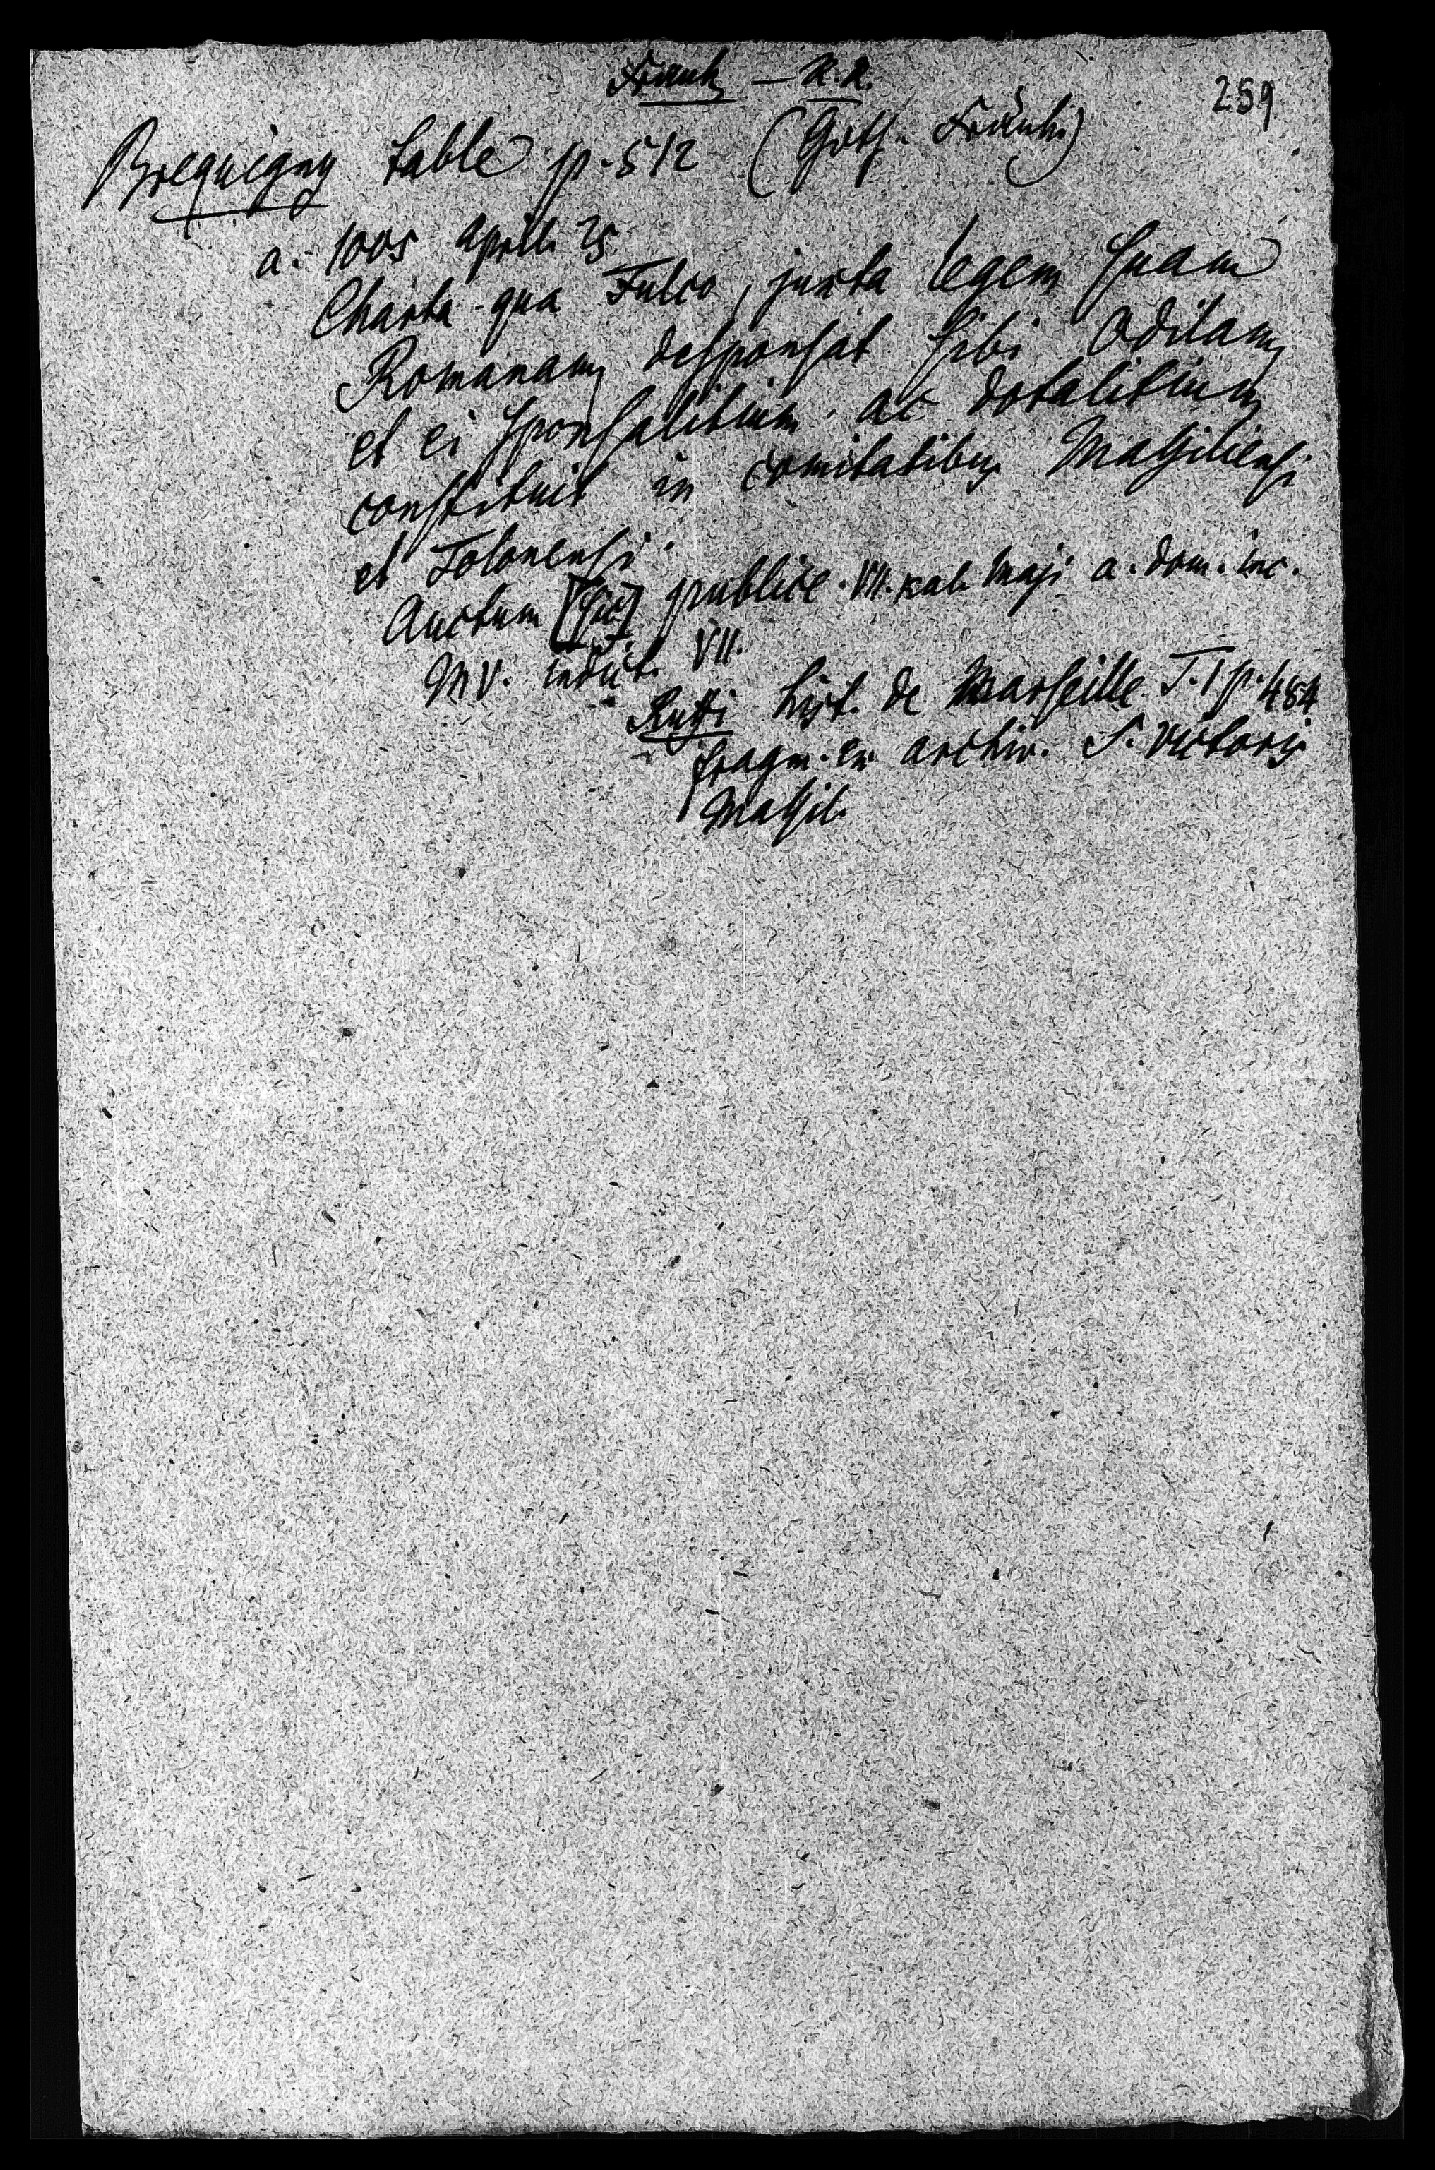 Fränk — R. R.
259
Brequigny table p. 512 (Goth. Fränk.)
a. 1005 April 25
Charta qua Fulco, juxta legem suam
Romanam desponsat sibi Odilam
et ei sponsalitium ac dotalitium
constituit in comitatibus Massiliensi
et Tolonensi.
Auctum [sic] publice. VII. kal. Maji a. dom. inc.
MV. indict. VII.
Ruffi hist. de Marseille T. I p. 484
fragm. ex archiv. S. Victoris
Massil.